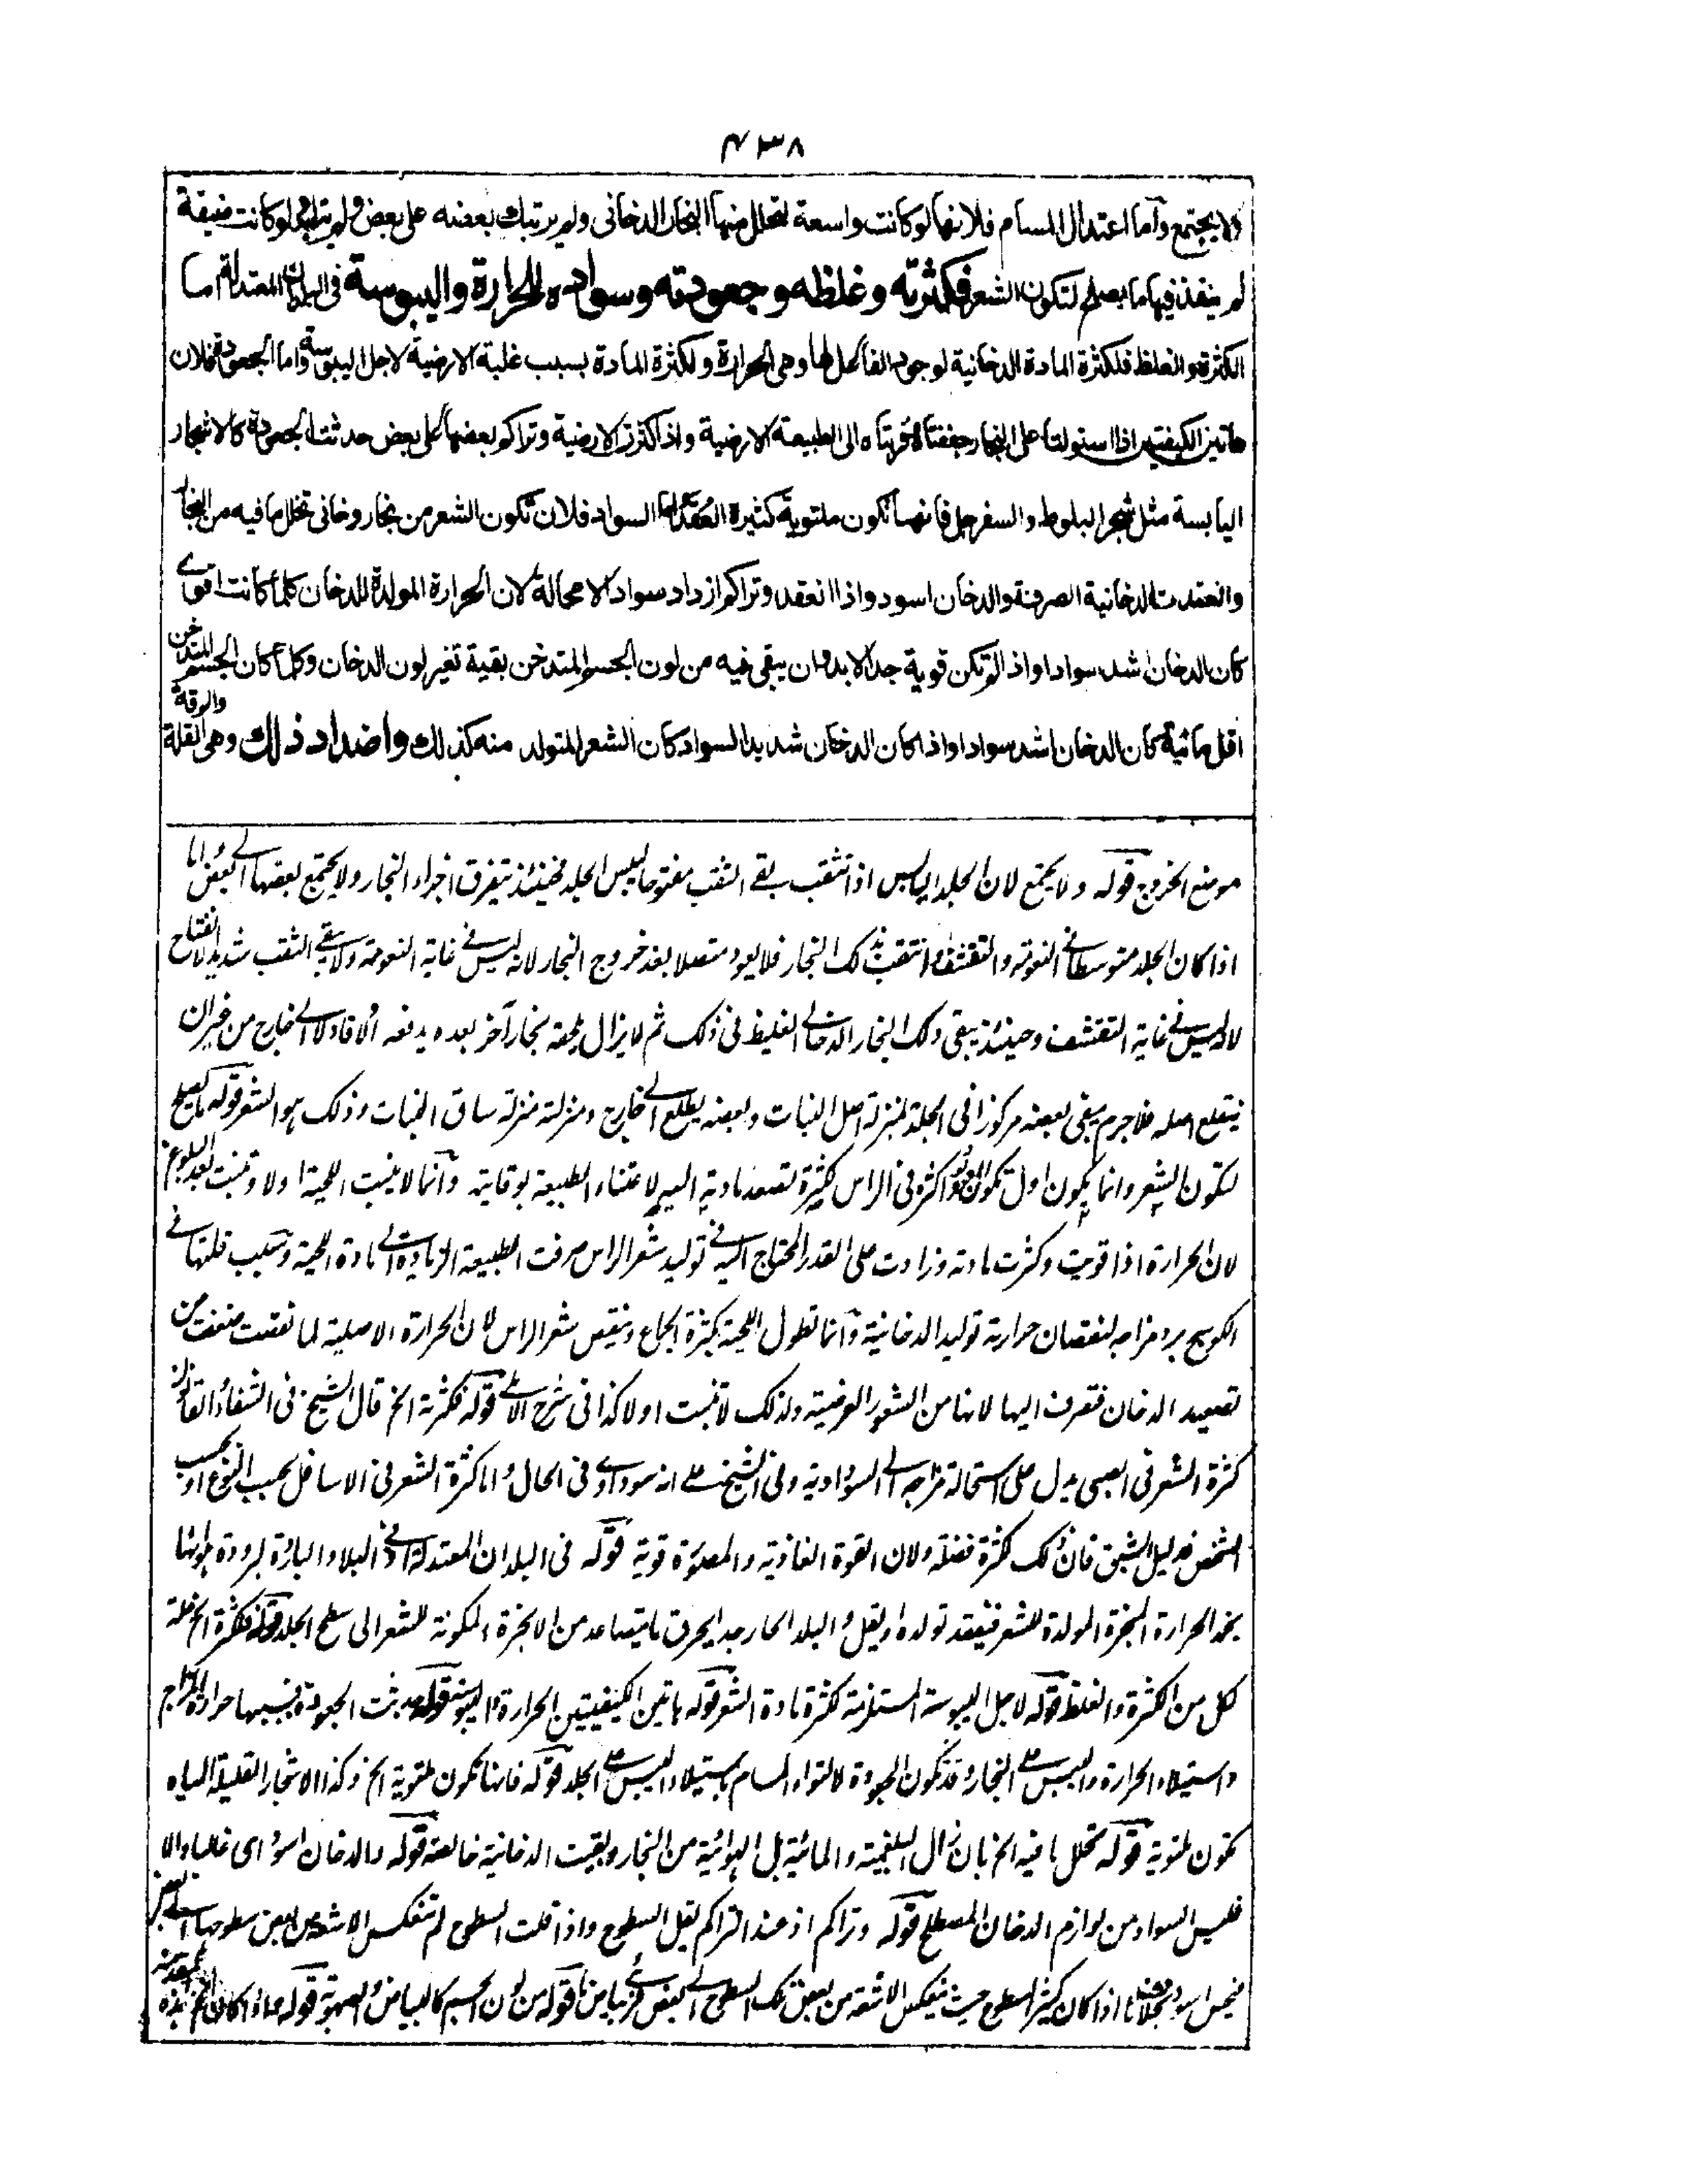 ۴۳۸
ولا يجتمع وأما اعتدال المسام فلانها لو كانت واسعة لتحلل منها البخار الدخانى ولم يرتبك بعضه على بعض ولو كانت ضيقة
لم ينفذ فيها ما يصلح لتكون الشعر فكثرته وغلظه وجعودته وسواده للحرارة واليبوسة فى البلدان المعتدلة اما
الكثرة والغلظ فلكثرة المادة الدخانية لوجود الفاعل لها وهى الحرارة ولكثرة المادة بسبب غلبة الارضية لاجل اليبوسة واما الجعودة فلان
هاتين الكيفيتين اذا استولتا على البخار جففتاه وقربتاه الى الطبيعة الارضية واذا كثرت الارضية وتراكم بعضها على بعض حدثت الجعودة كالاشجار
اليابسة مثل شجر البلوط والسفرجل فانها تكون ملتوية كثيرة العقد اما السواد فلان تكون الشعر من بخار دخانى تحلل ما فيه من البخار
وانعقدت الدخانية الصرفة والدخان اسود واذا انعقد وتراكم ازداد سوادا لا محالة لان الحرارة المولدة للدخان كلما كانت اقوى
كان الدخان اشد سوادا واذا لم تكن قوية جدا لابد وان يبقى فيه من لون الجسم المتدخن بقية تغير لون الدخان وكلما كان الجسم المتدخن
اقل مائية كان الدخان اشد سوادا واذا كان الدخان شديد السواد كان الشعر المتولد منه كذلك واضداد ذلك وهى القلة والرقة
موضع الخروج قوله ولا يجتمع لان الجلد اليابس اذا تثقب بقى الثقب مفتوحا ليبس الجلد فحينئذ يتفرق اجزاء البخار ولا يجتمع بعضها الى بعض واما
اذا كان الجلد متوسطا فى النعومة والتقشف انتقب بذلك البخار فلا يعود متصلا بعد خروج البخار لانه ليس فى غاية النعومة ولا يبقى الثقب شديد الانفتاح
لانه ليس فى غاية التقشف وحينئذ يبقى ذلك البخار الدخانى الغليظ فى ذلك ثم لا يزال يلحقه بخار آخر بعده يدفعه اولا فاولا الى خارج من غير ان
ينقلع اصله فلا جرم يبقى بعضه مركوزا فى الجلد بمنزلة اصل النبات وبعضه يطلع الى خارج ومنزلته منزلة ساق النبات وذلك هو الشعر قوله ما يصلح
لتكون الشعر وانما يكون اول تكون الشعر اكثره فى الراس لكثرة تصعد مادته اليه لاعتناء الطبيعة بوقايته وانما لا ينبت اللحية اولا وتنبت بعد البلوغ
لان الحرارة اذا قويت وكثرت مادته وزادت على القدر المحتاج اليه فى توليد شعر الراس صرفت الطبيعة الزيادة الى مادة اللحية وسبب قلتها فى
الكوسج برد مزاجه لنقصان حرارته توليد الدخانية وانما تطول اللحية بكثرة الجماع وينقص شعر الراس لان الحرارة الاصلية لما نقصت ضعفت من
تصعيد الدخان فتصرف اليها لانها من الشعور العرضية ولذلك لا تنبت اولا كذا فى شرح الآملى قوله فكثرته الخ قال الشيخ فى الشفاء
كثرة الشعر فى الصبى يدل على استحالة مزاجه الى السوداوية وفى الشيخ على انه سوداوى فى الحال واما كثرة الشعر فى الاسافل بحسب النوع او بحسب
الشخص فدليل الشبق فان ذلك لكثرة فضلة ولان القوة الغاذية والمصورة قوية قوله فى البلدان المعتدلة اذ فى البلاد الباردة لبرودة هوائها
يخمد الحرارة المبخرة المولدة للشعر فيفقد تولده او يقل والبلد الحار جدا يحرق ما يتصاعد من الابخرة المكونة للشعر الى سطح الجلد قوله فلكثرة الخ علة
لكل من الكثرة والغلظ قوله لاجل اليبوسة المستلزمة لكثرة مادة الشعر قوله هاتين الكيفيتين الحرارة واليبوسة قوله حدثت الجعودة فسببها حرارة المزاج
واستيلاء الحرارة واليبس على البخار وقد تكون الجعودة لالتواء المسام باستيلاء اليبس على الجلد قوله فانها تكون ملتوية الخ وكذا الاشجار القليلة المياه
تكون ملتوية قوله تحلل ما فيه الخ بان زال البلغمية والمائية بل الهوائية من البخار وبقيت الدخانية خالصة قوله والدخان اسود اى غالبا والا
فليس السواد من لوازم الدخان المصطلح قوله وتراكم اذ عند التراكم يقل السطوح واذا قلت السطوح لم تنعكس الاشعة من بعض سطوحها الى بعض
فيحس اسود بخلاف ما اذا كان كثير السطوح حيث ينعكس الاشعة من بعض تلك السطوح الى بعض فيرى بياضا قوله من لون الجسم كالبياض والصهوبة قوله